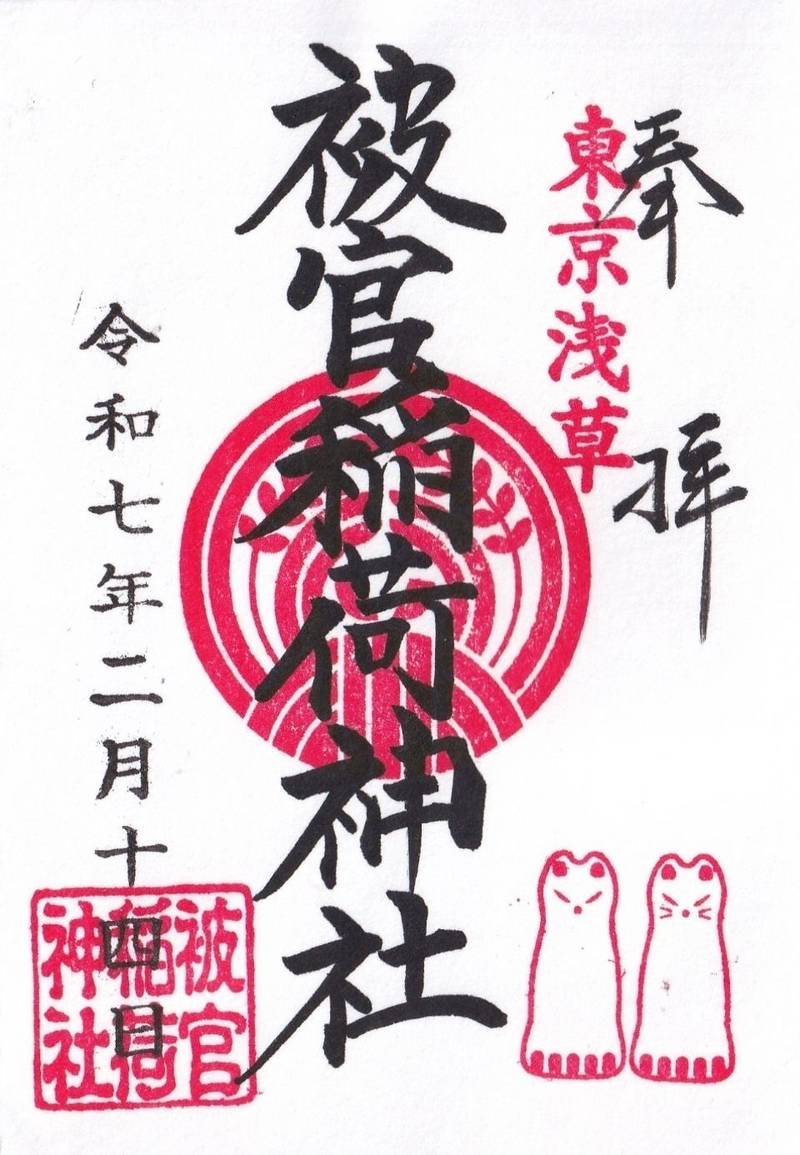 奉拝
東京浅草
被官稲荷神社
令和七年二月十四日
被官
稲荷
神社